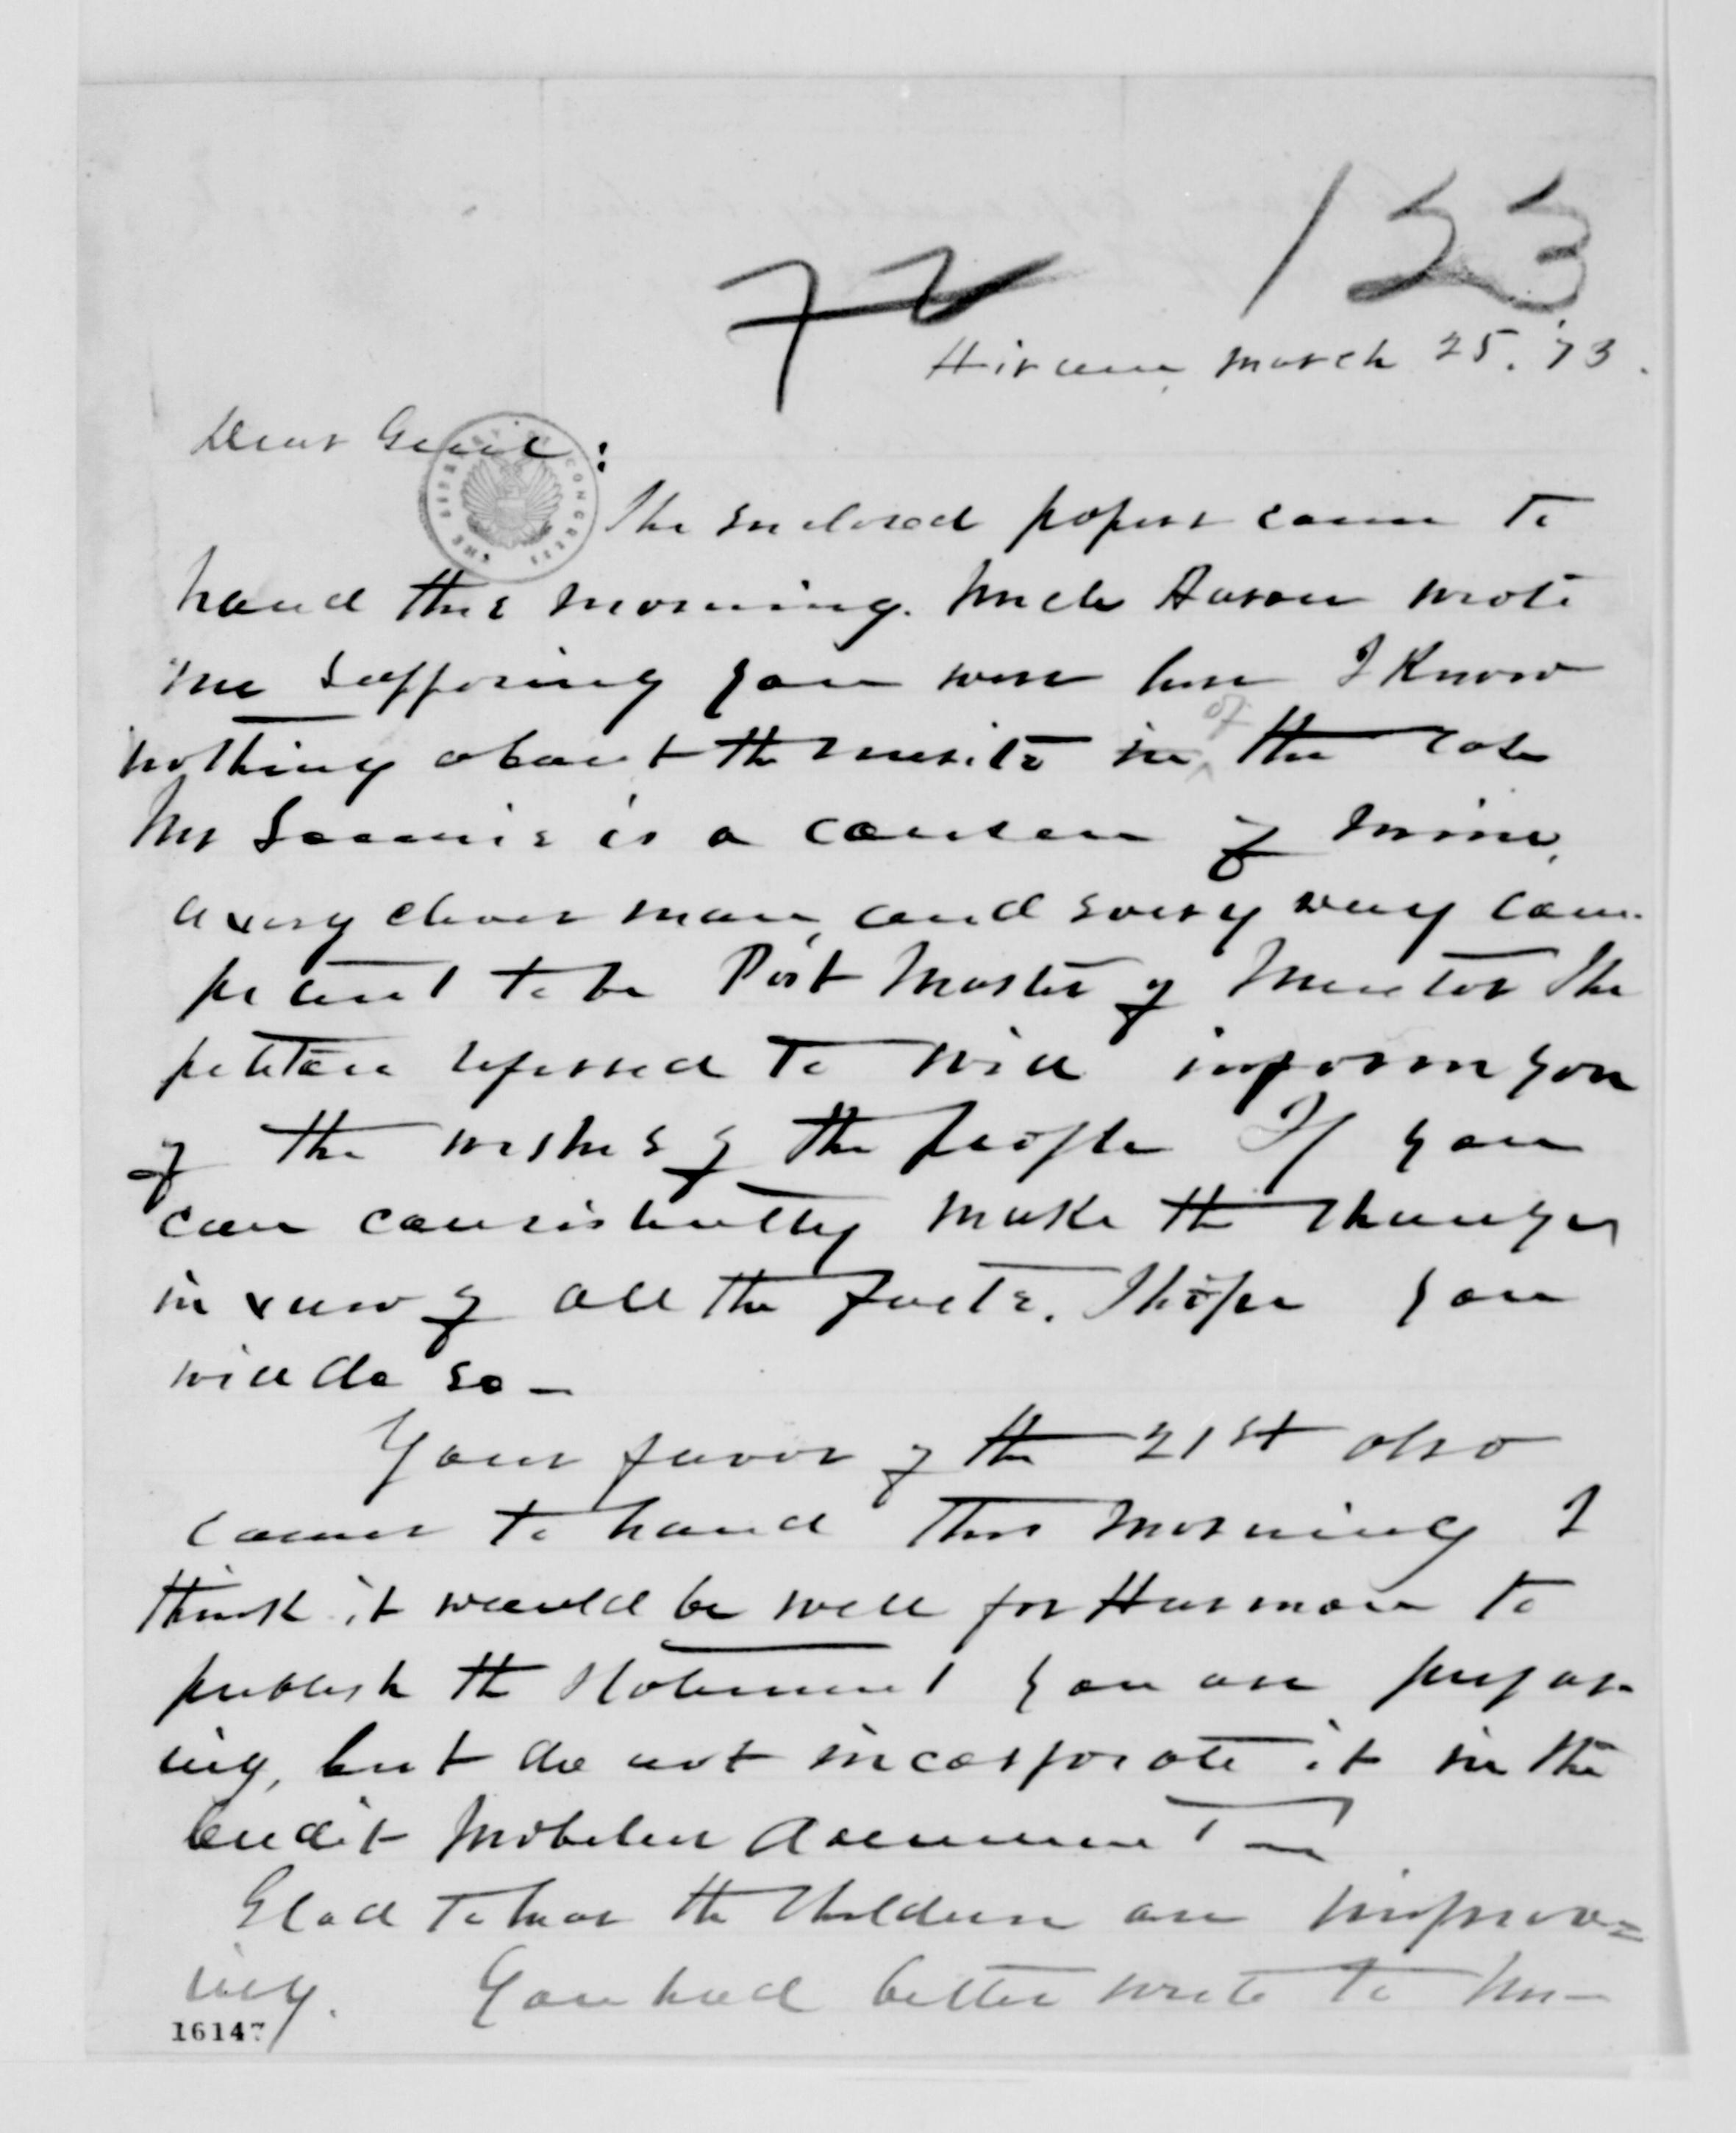 133
72
Hiram, March 25. '73.
Dear Genl :
THE LIBRARY OF CONGRESS
The enclosed papers came to
hand this morning. Uncle Aaron wrote
me supposing you were here I know
nothing about the merits in of the case
Mr Loomis is a cousin of mine,
a very clever man, and every way com-
petent to be Post Master of Mentor The
petition referred to will inform you
of the wishes of the people If you
can consistently make the change
in view of all the facts. I hope you
will do so –
Your favor of the 21st also
came to hand this morning I
think it would be well for Harmon to
publish the statement you are prepar-
ing, but do not incorporate it in the
Credit Mobelier document –
Glad to hear the children are improv=
ing. You had better write to
16147